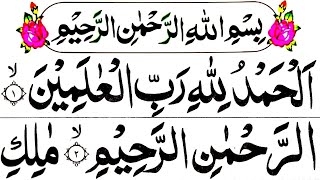 بِسْمِ اللهِ الرَّحْمٰنِ الرَّحِيْمِ
اَلْحَمْدُ لِلّٰهِ رَبِّ الْعٰلَمِيْنَ ۙ﴿۱﴾
الرَّحْمٰنِ الرَّحِيْمِ ۙ﴿۲﴾ مٰلِكِ